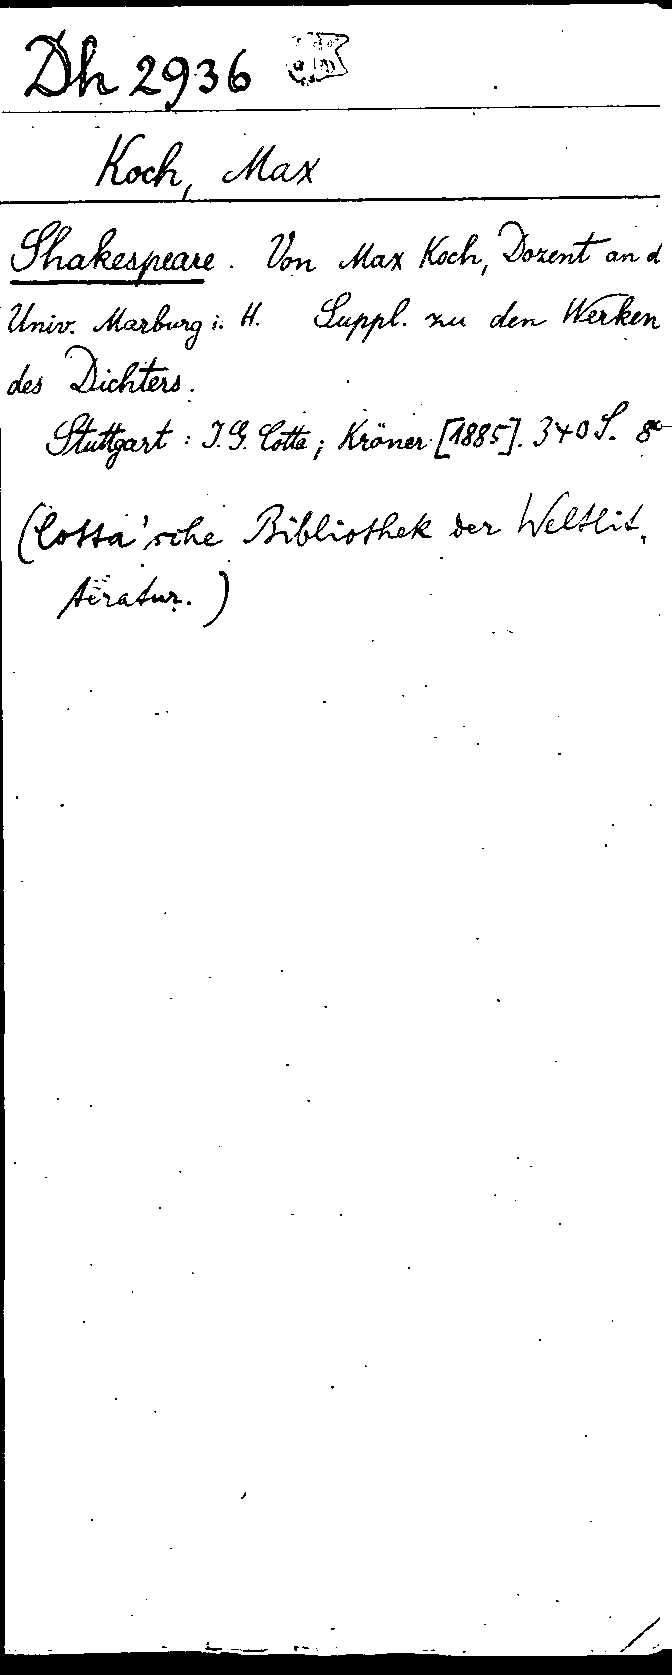 Dh 2936
Koch, Max
Shakespeare. Von Max Koch, Dozent an d
Univ. Marburg i. H. Suppl. zu den Werken
des Dichters.
Stuttgart: J. G. Cotta; Kröner [1885]. 340 S. 8°
(Cotta'sche Bibliothek der Weltlit,
teratur.)